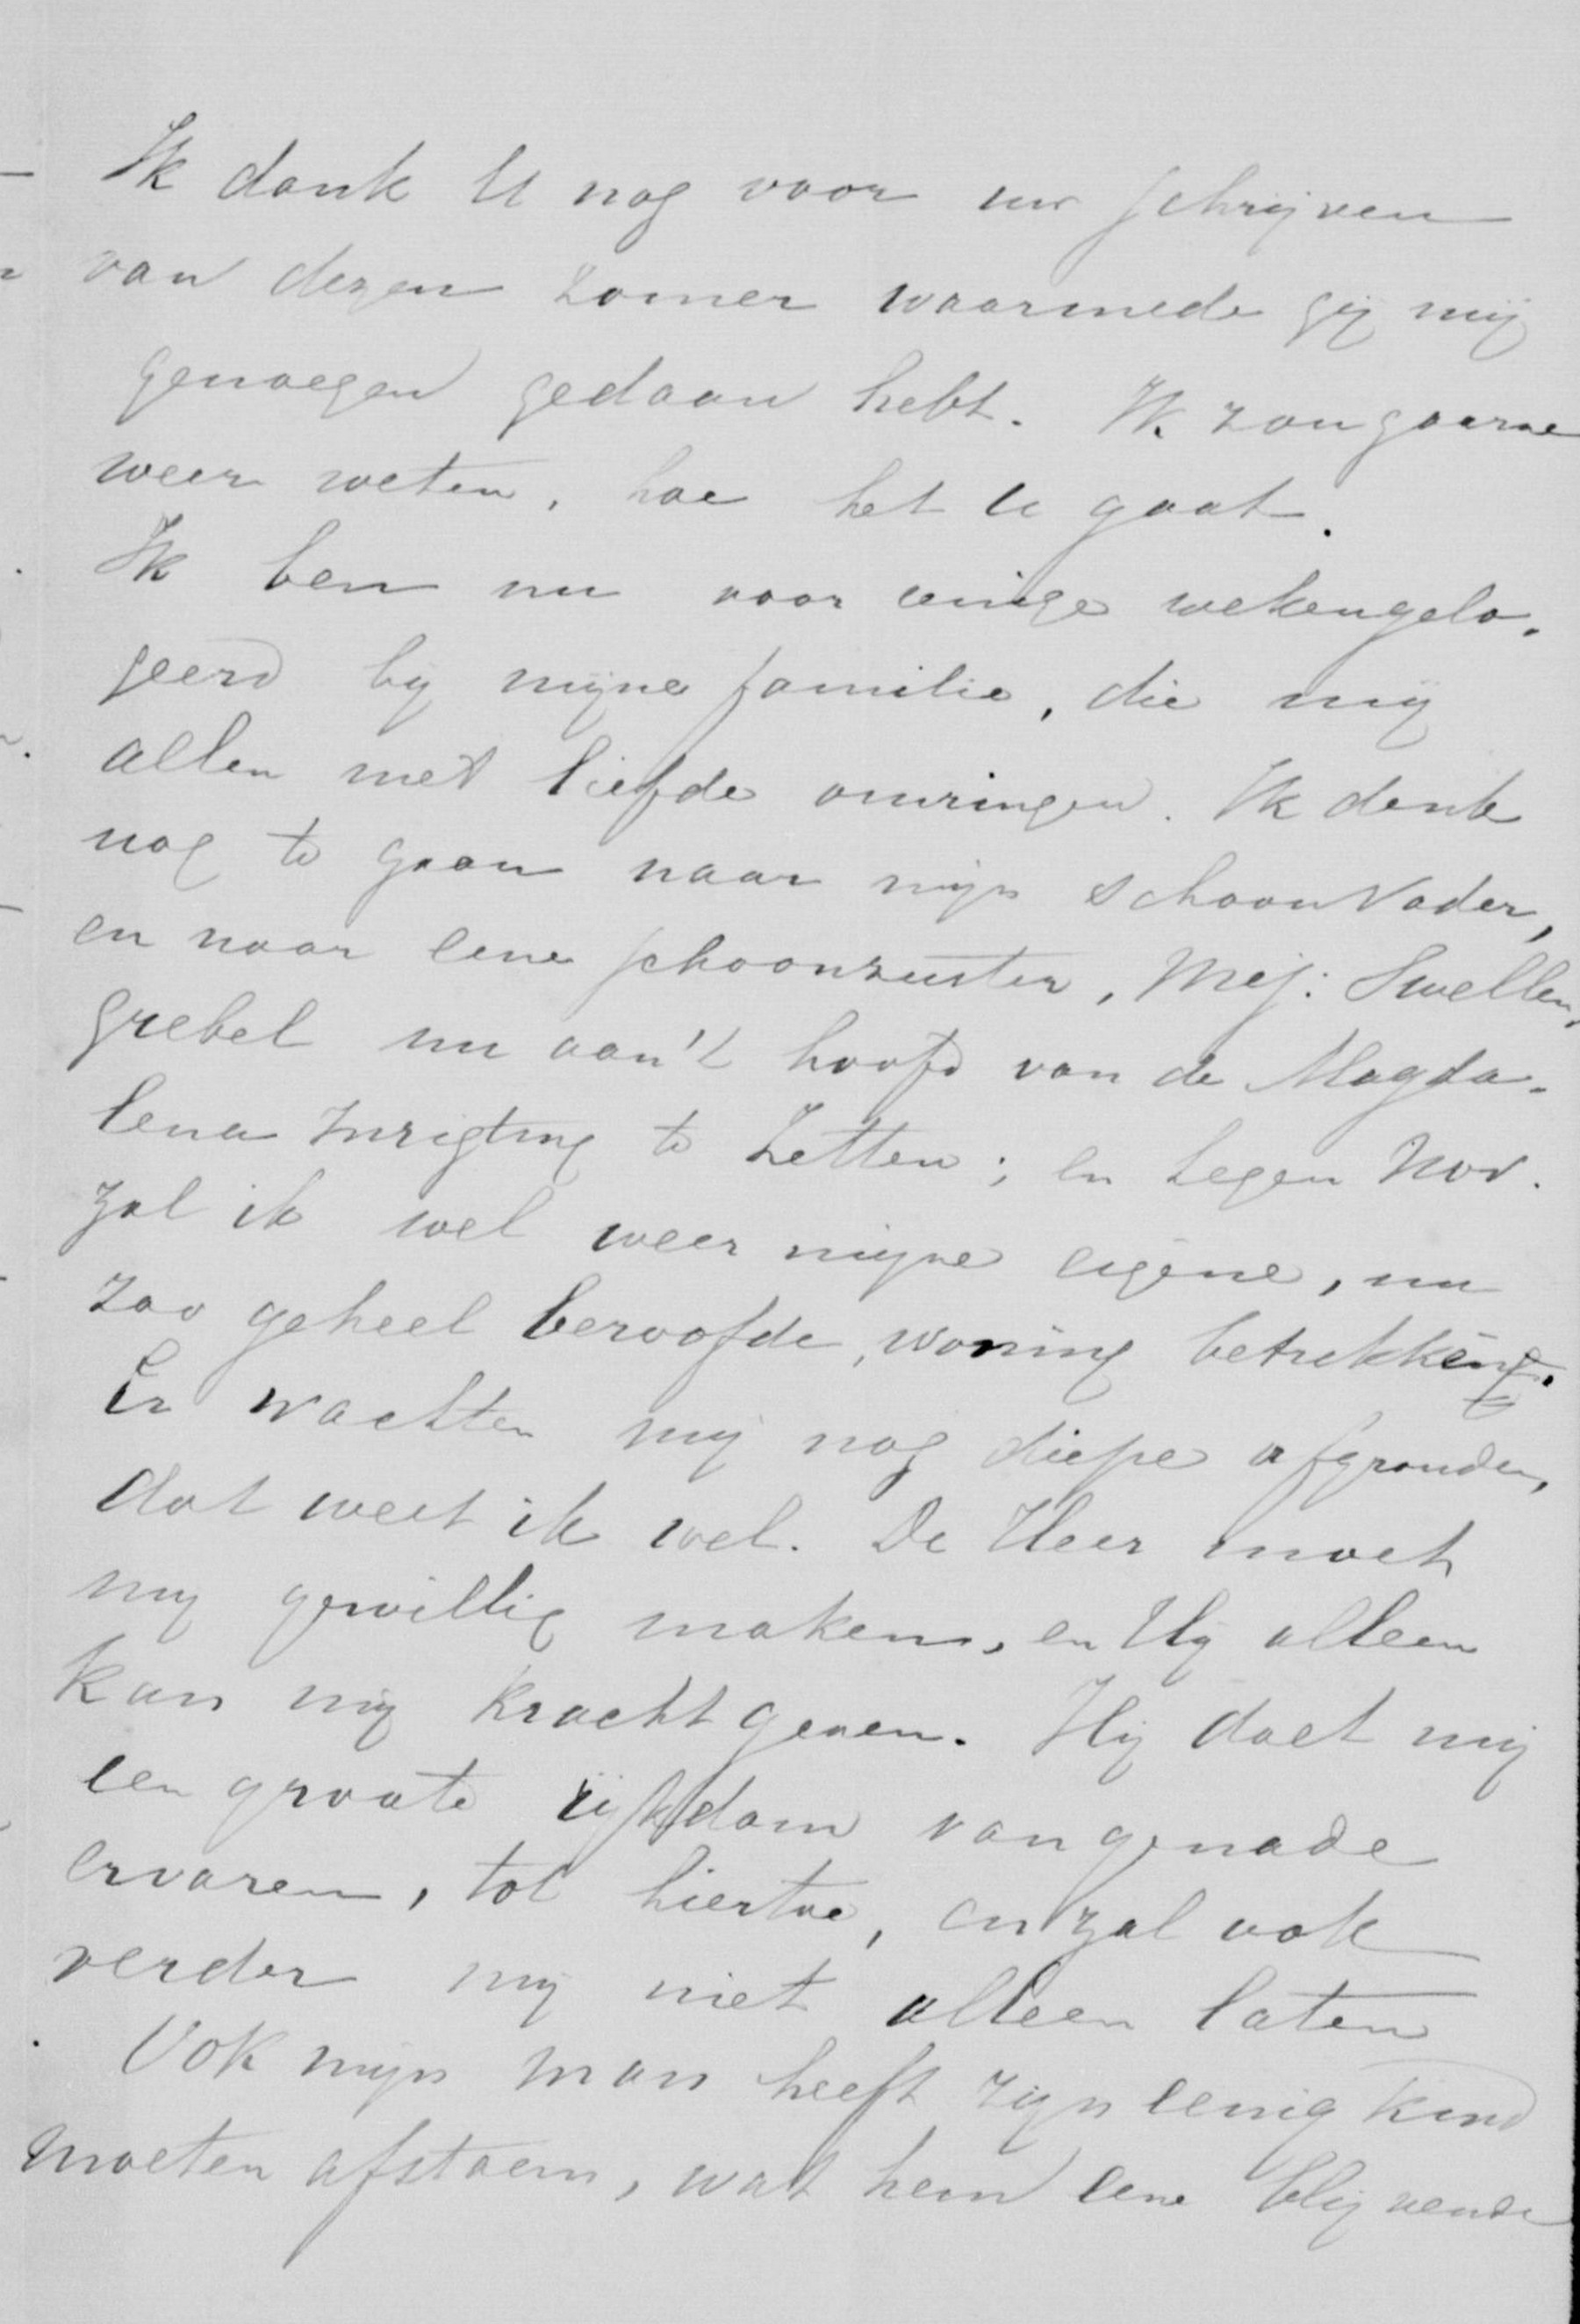 Ik dank U nog voor uw schrijven
van dezen zomer waarmede gij mij
genoegen gedaan hebt. Ik zou gaarne
weer weten, hoe het U gaat.
Ik ben nu voor eenige weken gelo-
geerd bij mijne familie, die mij
allen met liefde omringen. Ik denk
nog te gaan naar mijn schoonvader,
en naar eene schoonzuster, Mej: Swellen-
grebel nu aan 't hoofd van de Magda-
lena Inrigting te Zetten; en tegen Nov.
zal ik wel weer mijne eigene, nu
zoo geheel beroofde, woning betrekken.
Er wachten mij nog diepe afgronden,
dat weet ik wel. De Heer moet
mij gewillig maken, en Hij alleen
kan mij kracht geven. Hij doet mij
een groote rijkdom van genade
ervaren, tot hiertoe, en zal ook
verder mij niet alleen laten
Ook mijn man heeft zijn eenig kind
moeten afstaan, wat hem eene blijvende